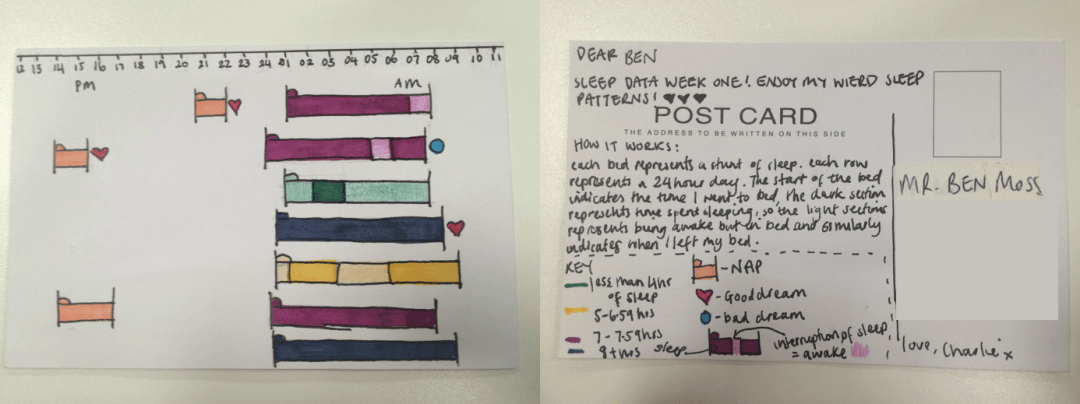 12 13 14 15 16 17 18 19 20 21 22 23 24 01 02 03 04 05 06 07 08 09 10 11
PM
AM
DEAR BEN
SLEEP DATA WEEK ONE! ENJOY MY WIERD SLEEP
PATTERNS! ♥♥♥
POST CARD
THE ADDRESS TO BE WRITTEN ON THIS SIDE
HOW IT WORKS:
each bed represents a stunt of sleep. each row
represents a 24 hour day. The start of the bed
indicates the time I went to bed, the dark section
represents time spent sleeping, so the light section
represents being awake but in bed and similarly
indicates when I left my bed.
MR. BEN MOSS
KEY
less than 4hr
of sleep
5-6.59 hrs
7-7.59 hrs
8+ hrs sleep
- NAP
- Good dream
- bad dream
interruption of sleep
= awake
love, Charlie x